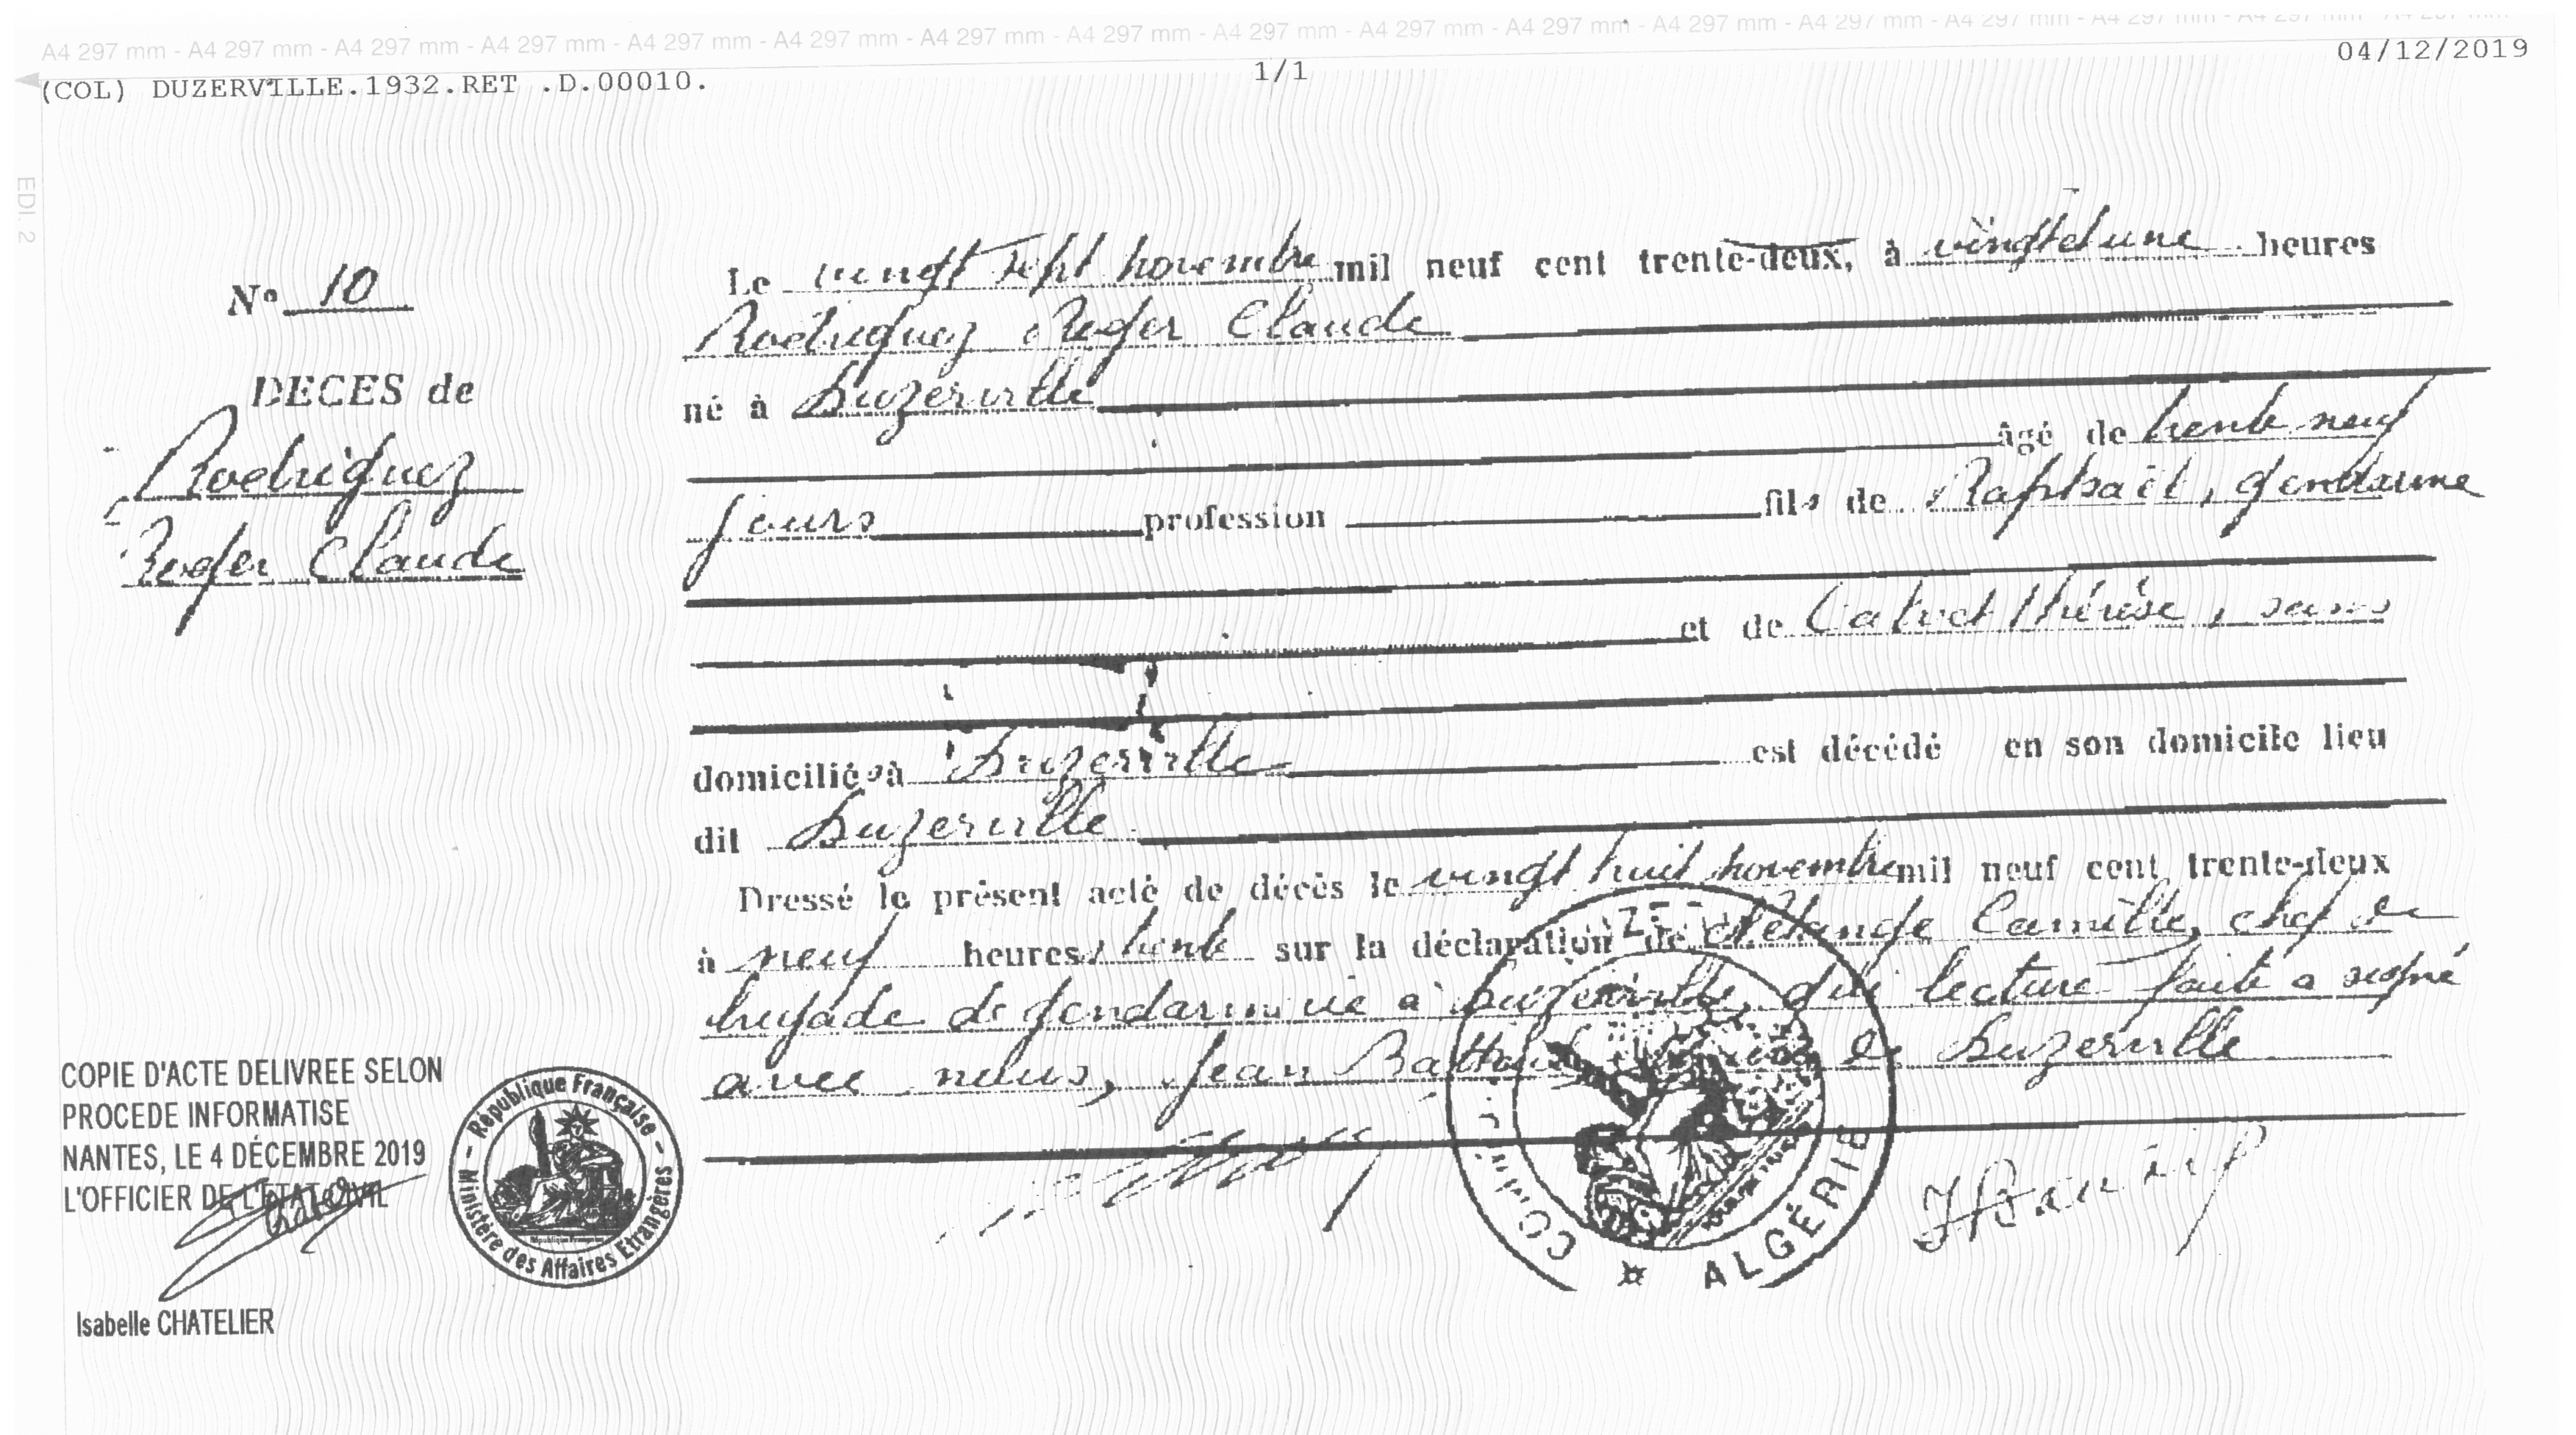 A4 297 mm - A4 297 mm - A4 297 mm - A4 297 mm - A4 297 mm - A4 297 mm - A4 297 mm - A4 297 mm - A4 297 mm - A4 297 mm - A4 297 mm - A4 297 mm - A4 297 mm - A4 297 mm - A4 297 mm - A4 297 mm - A4 297 mm
(COL) DUZERVILLE.1932.RET .D.00010.
1/1
04/12/2019
EDI. 2
N° 10
DECES de
Rodriguez
Roger Claude
Le vingt sept novembre mil neuf cent trente-deux, à vingt et une heures
Rodriguez Roger Claude
né à Duzerville
âgé de trente neuf
jours profession fils de Raphaël, gendarme
et de Calvet Thérèse, sans
domiciliés à Duzerville est décédé en son domicile lieu
dit Duzerville
Dressé le présent acte de décès le vingt huit novembre mil neuf cent trente-deux
à neuf heures trente sur la déclaration de Camille, chef de
brigade de gendarmerie à Duzerville, qui lecture faite a signé
avec nous, Jean de Duzerville
COPIE D'ACTE DELIVREE SELON
PROCEDE INFORMATISE
NANTES, LE 4 DÉCEMBRE 2019
L'OFFICIER DE L'ETAT CIVIL
Isabelle CHATELIER
République Française
Ministère des Affaires Etrangères
ALGÉRIE